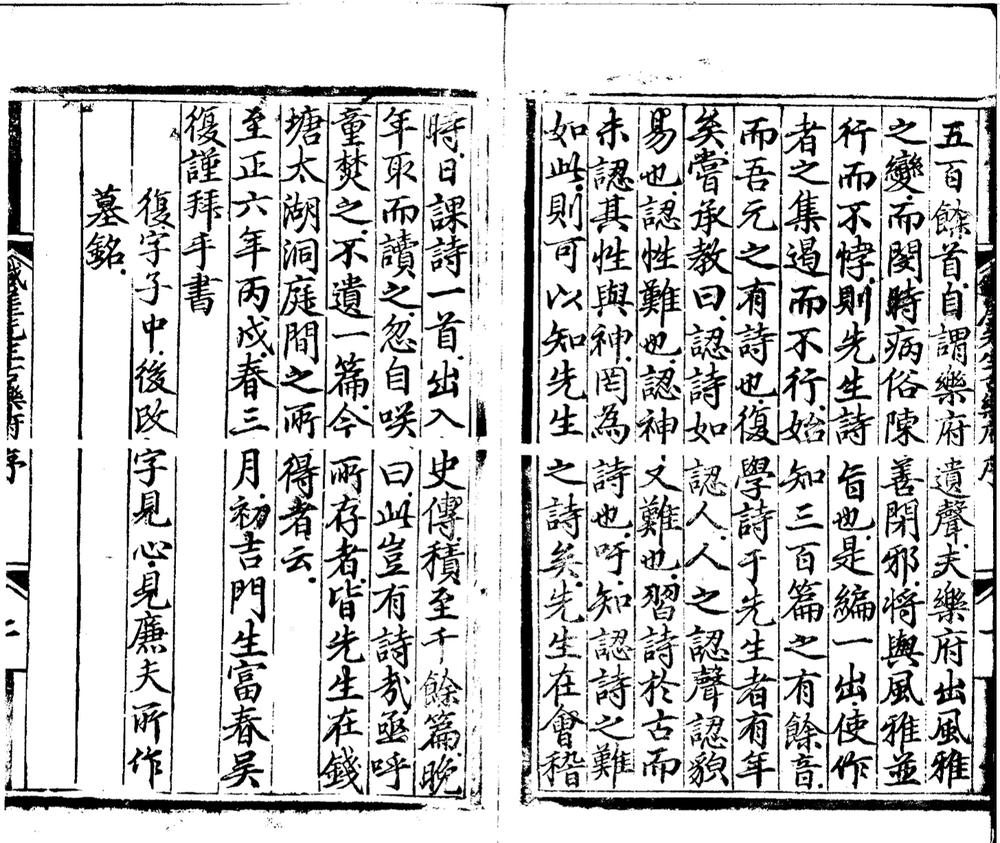 五百餘首自謂樂府遺聲夫樂府出風雅
之變而閔時病俗陳善閉邪將與風雅並
行而不悖則先生詩旨也是編一出使作
者之集遏而不行始知三百篇之有餘音
而吾元之有詩也復學詩于先生者有年
矣嘗承教曰認詩如認人人之認聲認貌
易也認性難也認神又難也習詩於古而
未認其性與神罔為詩也吁知認詩之難
如此則可以知先生之詩矣先生在會稽
時日課詩一首出入史傳積至千餘篇晚
年取而讀之忽自咲曰此豈有詩哉亟呼
童焚之不遺一篇今所存者皆先生在錢
塘太湖洞庭間之所得者云
至正六年丙戍春三月初吉門生富春吳
復謹拜手書
復字子中後改字見心見廉夫所作
墓銘